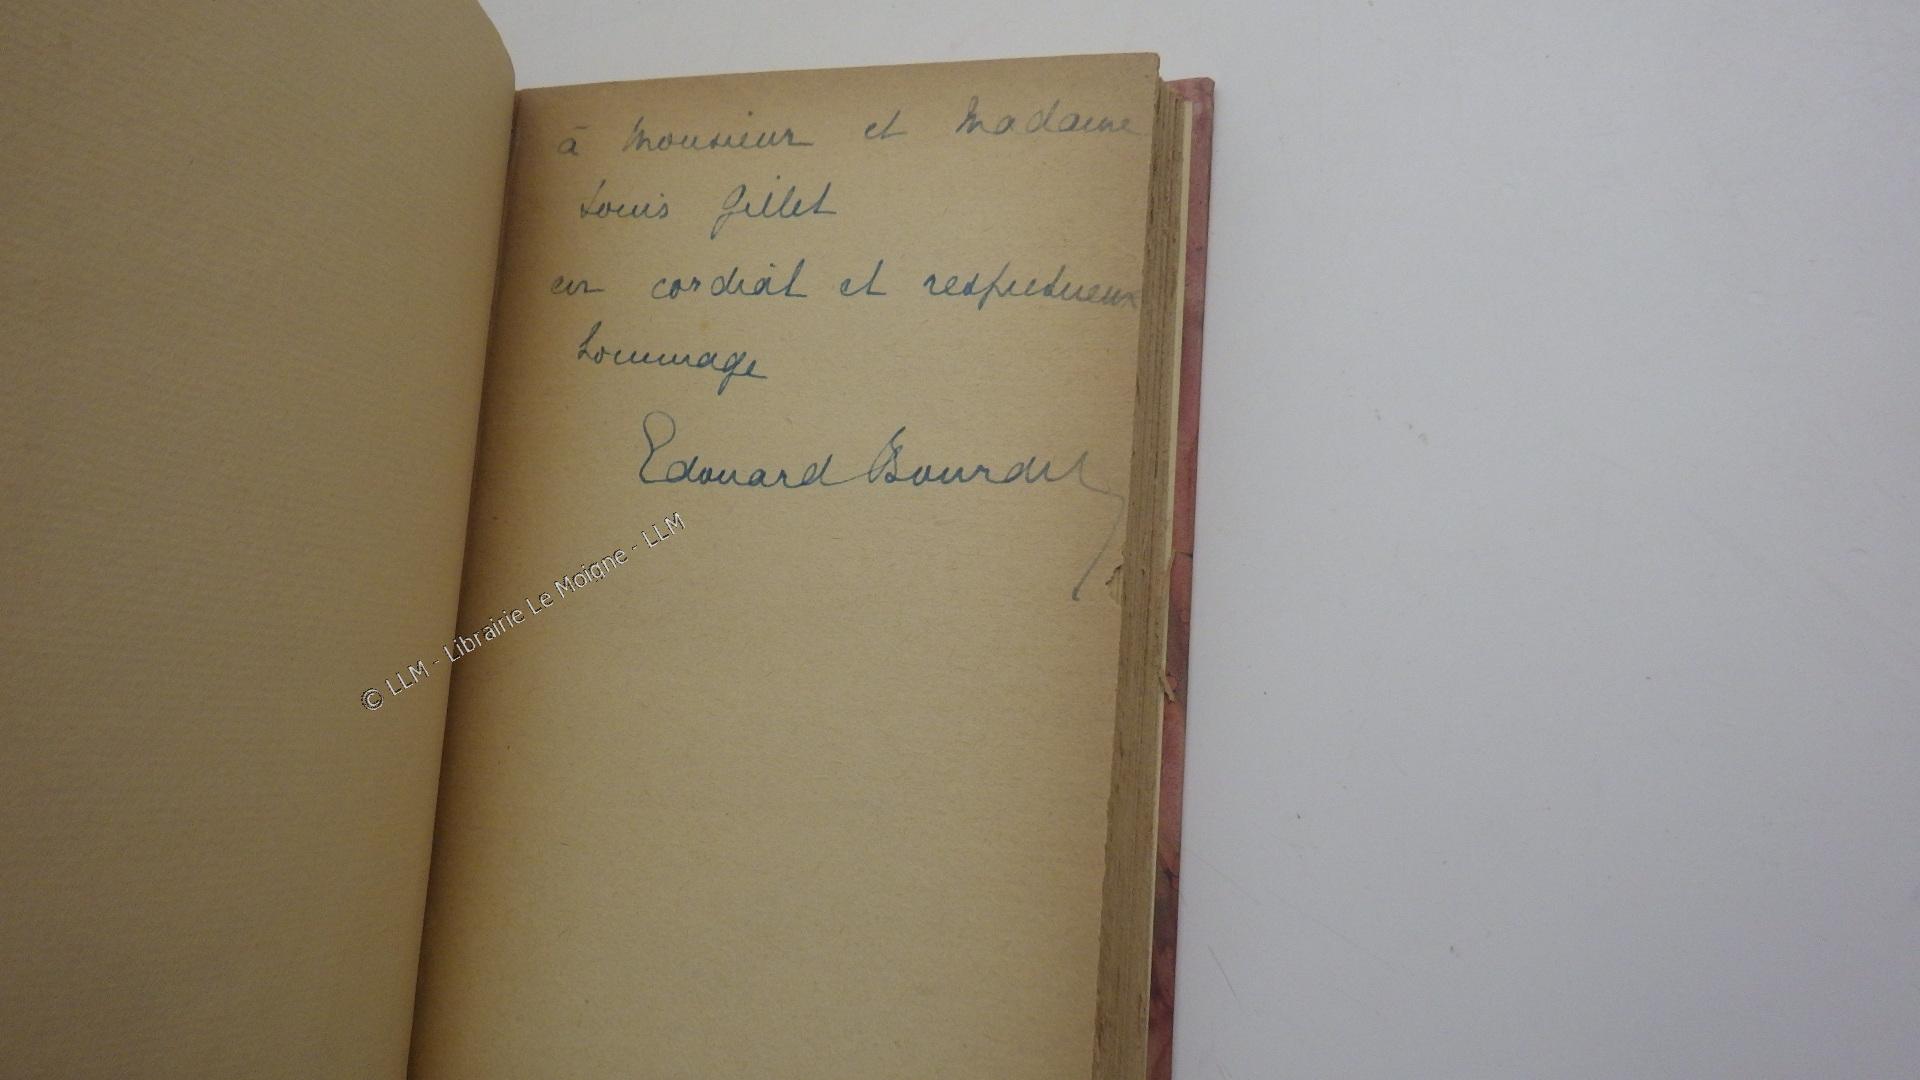 à Monsieur et Madame
Louis Gillet
en cordial et respectueux
hommage
Edouard Bourdet
© LLM - Librairie Le Moigne - LLM